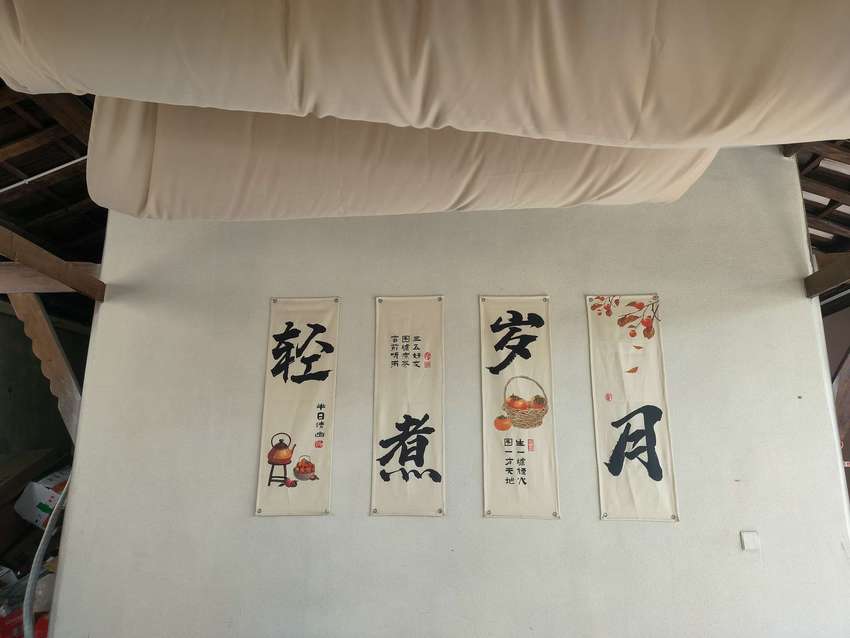 轻
半日清幽
煮
三五好友
围炉煮茶
窗前听雨
岁
生一炉火
围一方天地
月